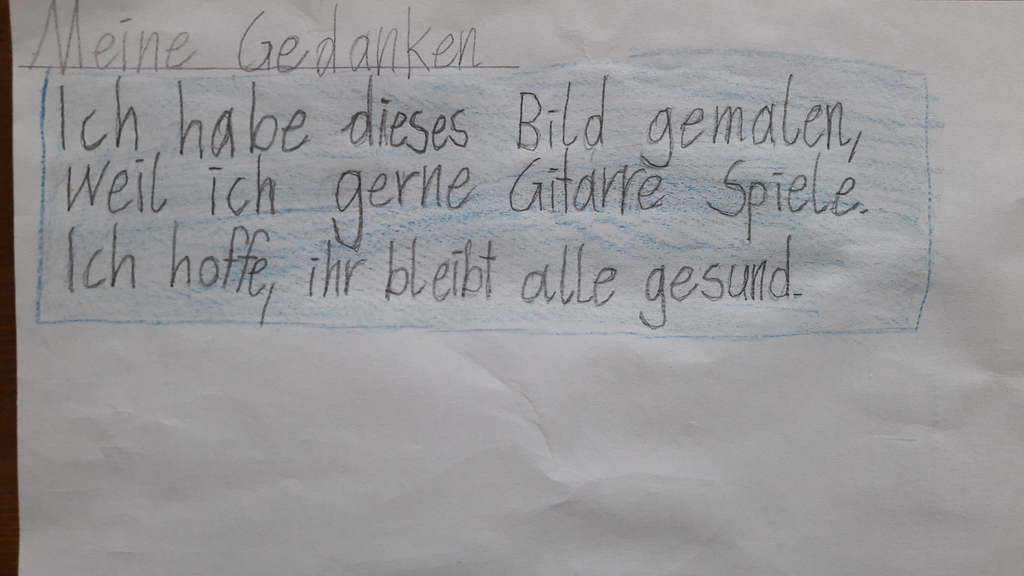 Meine Gedanken
Ich habe dieses Bild gemalen,
weil ich gerne Gitarre Spiele.
Ich hoffe, ihr bleibt alle gesund.